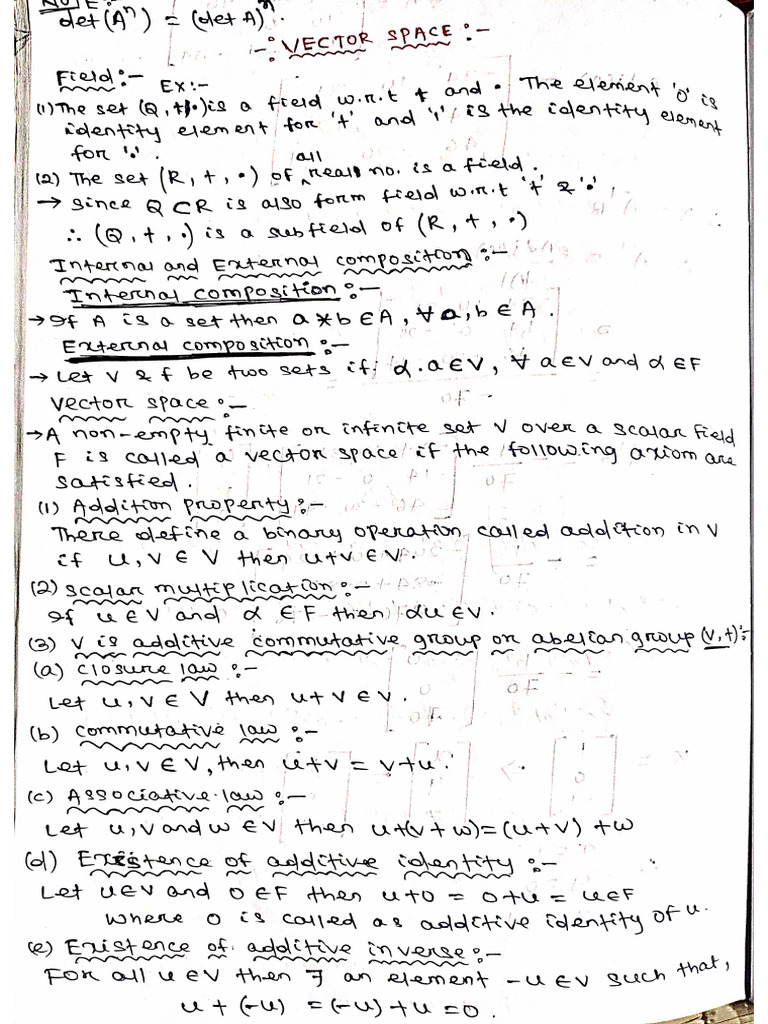 NOTE:
det(Aⁿ) = (det A)ⁿ.
-: VECTOR SPACE :-
Field:-
Ex:-
(1) The set (Q, +, ·) is a field w.r.t + and · The element '0' is
identity element for '+' and '1' is the identity element
for '·'.
(2) The set (R, +, ·) of all real no. is a field.
→ Since Q ⊂ R is also form field w.r.t '+' & '·'
∴ (Q, +, ·) is a subfield of (R, +, ·)
Internal and External composition :-
Internal composition :-
→ If A is a set then a * b ∈ A, ∀ a, b ∈ A.
External composition :-
→ Let V & f be two sets if; α.a ∈ V, ∀ a ∈ V and α ∈ F
Vector space :-
→ A non-empty finite or infinite set V over a scalar field
F is called a vector space if the following axiom are
satisfied.
(1) Addition property :-
There define a binary operation called addition in V
if u, v ∈ V then u+v ∈ V.
(2) Scalar multiplication :-
If u ∈ V and α ∈ F then αu ∈ V.
(3) V is additive commutative group or abelian group (V, +) :-
(a) Closure law :-
Let u, v ∈ V then u + v ∈ V.
(b) Commutative law :-
Let u, v ∈ V, then u+v = v+u.
(c) Associative law :-
Let u, v and w ∈ V then u+(v+w) = (u+v)+w
(d) Existence of additive identity :-
Let u ∈ V and 0 ∈ F then u+0 = 0+u = u ∈ F
where 0 is called as additive identity of u.
(e) Existence of additive inverse :-
For all u ∈ V then ∃ an element -u ∈ V such that,
u + (-u) = (-u) + u = 0.